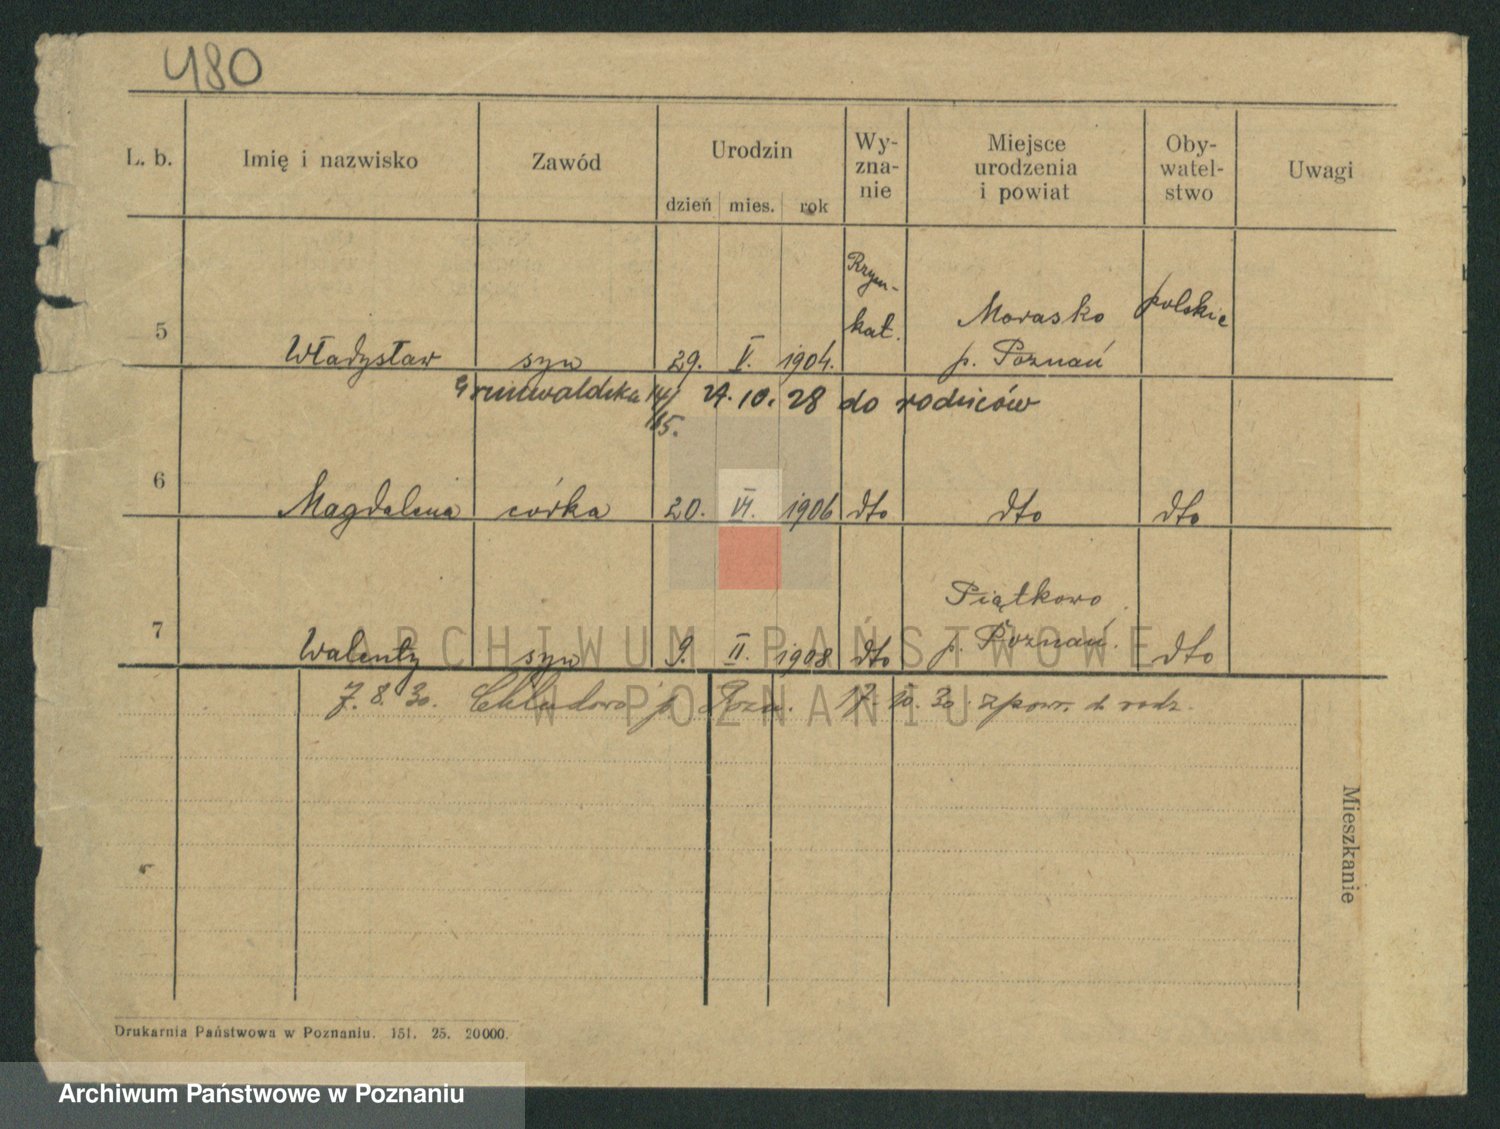 480
L. b. Imię i nazwisko Zawód Urodzin dzień mies. rok Wy-zna-nie Miejsce urodzenia i powiat Oby-watel-stwo Uwagi
5 Władysław syn 29. V. 1904. Rzym-kat. Morasko p. Poznań polskie
Grunwaldzka 14/15. 27.10.28 do rodziców
6 Magdalena córka 20. VI. 1906 dto dto dto
7 Walenty syn 9. II. 1908 dto Piątkowo p. Poznań. dto
7. 8. 30. Chludowo p. Pozn. 17. 10. 30. z pow. d. rodz.
Mieszkanie
ARCHIWUM PAŃSTWOWE
W POZNANIU
Drukarnia Państwowa w Poznaniu. 151. 25. 20000.
Archiwum Państwowe w Poznaniu